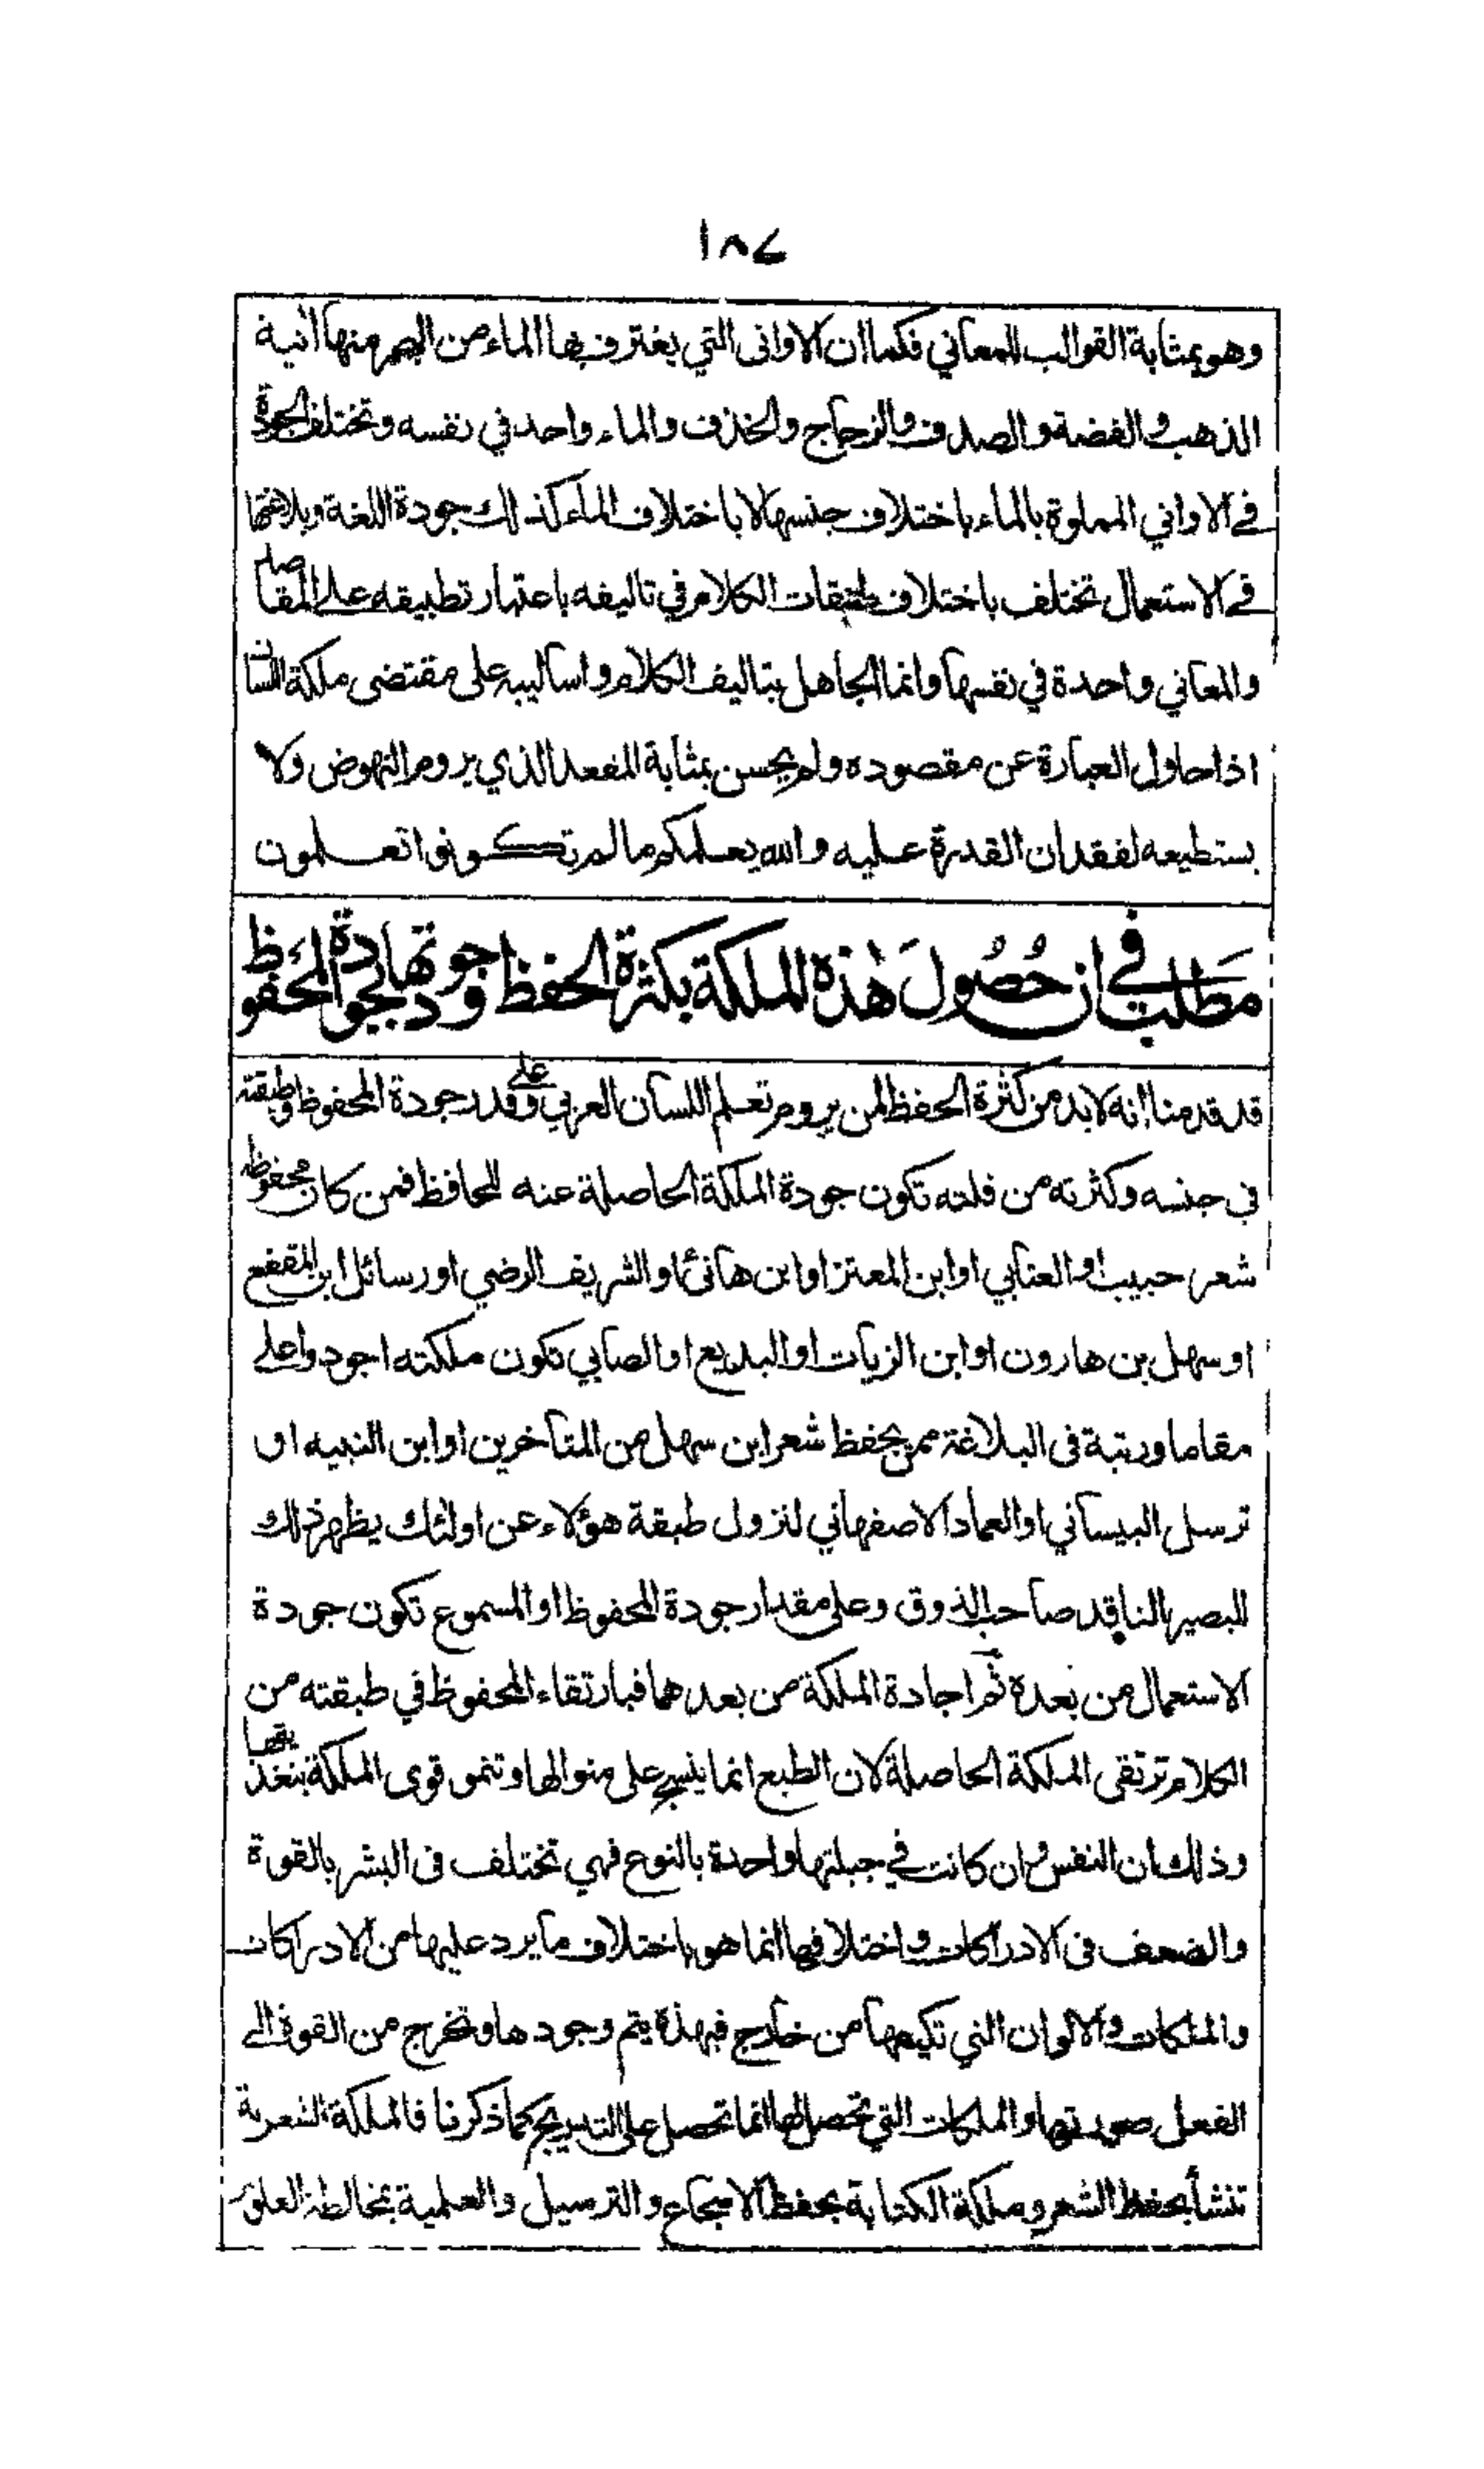 ١٨٤
وهو بمثابة القوالب للمعاني فكما ان الاوانى التي يغترف بها الماء من البحر منها آنية
الذهب والفضة والصدف والزجاج والخذف والماء واحد في نفسه وتختلف الجودة
في الاواني المملوة بالماء باختلاف جنسها لا باختلاف الماء كذلك جودة اللغة وبلاغتها
في الاستعمال تختلف باختلاف طبقات الكلام في تاليفه باعتبار تطبيقه على المقاصد
والمعاني واحدة في نفسها وانما الجاهل بتاليف الكلام واساليبه على مقتضى ملكة اللسان
اذا حاول العبارة عن مقصوده ولم يحسن بمثابة المقعد الذي يروم النهوض ولا
يستطيعه لفقدان القدرة عليه والله يعلمكم ما لم تكونوا تعلمون
مطلب في ان حصول هذه الملكة بكثرة الحفظ وجودتها بجودة المحفوظ
قد قدمنا انه لابد من كثرة الحفظ لمن يروم تعلم اللسان العربي وعلى قدر جودة المحفوظ وطبقته
في جنسه وكثرته من قلته تكون جودة الملكة الحاصلة عنه للحافظ فمن كان محفوظه
شعر حبيب او العتابي او ابن المعتز او ابن هانئ او الشريف الرضي او رسائل ابن المقفع
او سهل بن هارون او ابن الزيات او البديع او الصابي تكون ملكته اجود واعلى
مقاما ورتبة فى البلاغة ممن يحفظ شعر ابن سهل من المتأخرين او ابن النبيه او
ترسل البيساني او العماد الاصفهاني لنزول طبقة هؤلاء عن اولئك يظهر ذلك
للبصير الناقد صاحب الذوق وعلى مقدار جودة المحفوظ او المسموع تكون جودة
الاستعمال من بعده ثم اجادة الملكة من بعدهما فبارتقاء المحفوظ في طبقته من
الكلام ترتقى الملكة الحاصلة لان الطبع انما ينسج على منوالها وتنمو قوى الملكة بتغذيتها
وذلك ان النفس وان كانت في جبلتها واحدة بالنوع فهي تختلف فى البشر بالقوة
والضعف فى الادراكات واختلافها انما هو باختلاف ما يرد عليها من الادراكات
والملكات والالوان التي تكيفها من خارج فبهذه يتم وجودها وتخرج من القوة الى
الفعل صورتها والملكات التي تحصل لها انما تحصل على التدريج كما ذكرنا فالملكة الشعرية
تنشأ بحفظ الشعر وملكة الكتابة بحفظ الاسجاع والترسيل والعلمية بمخالطة العلوم